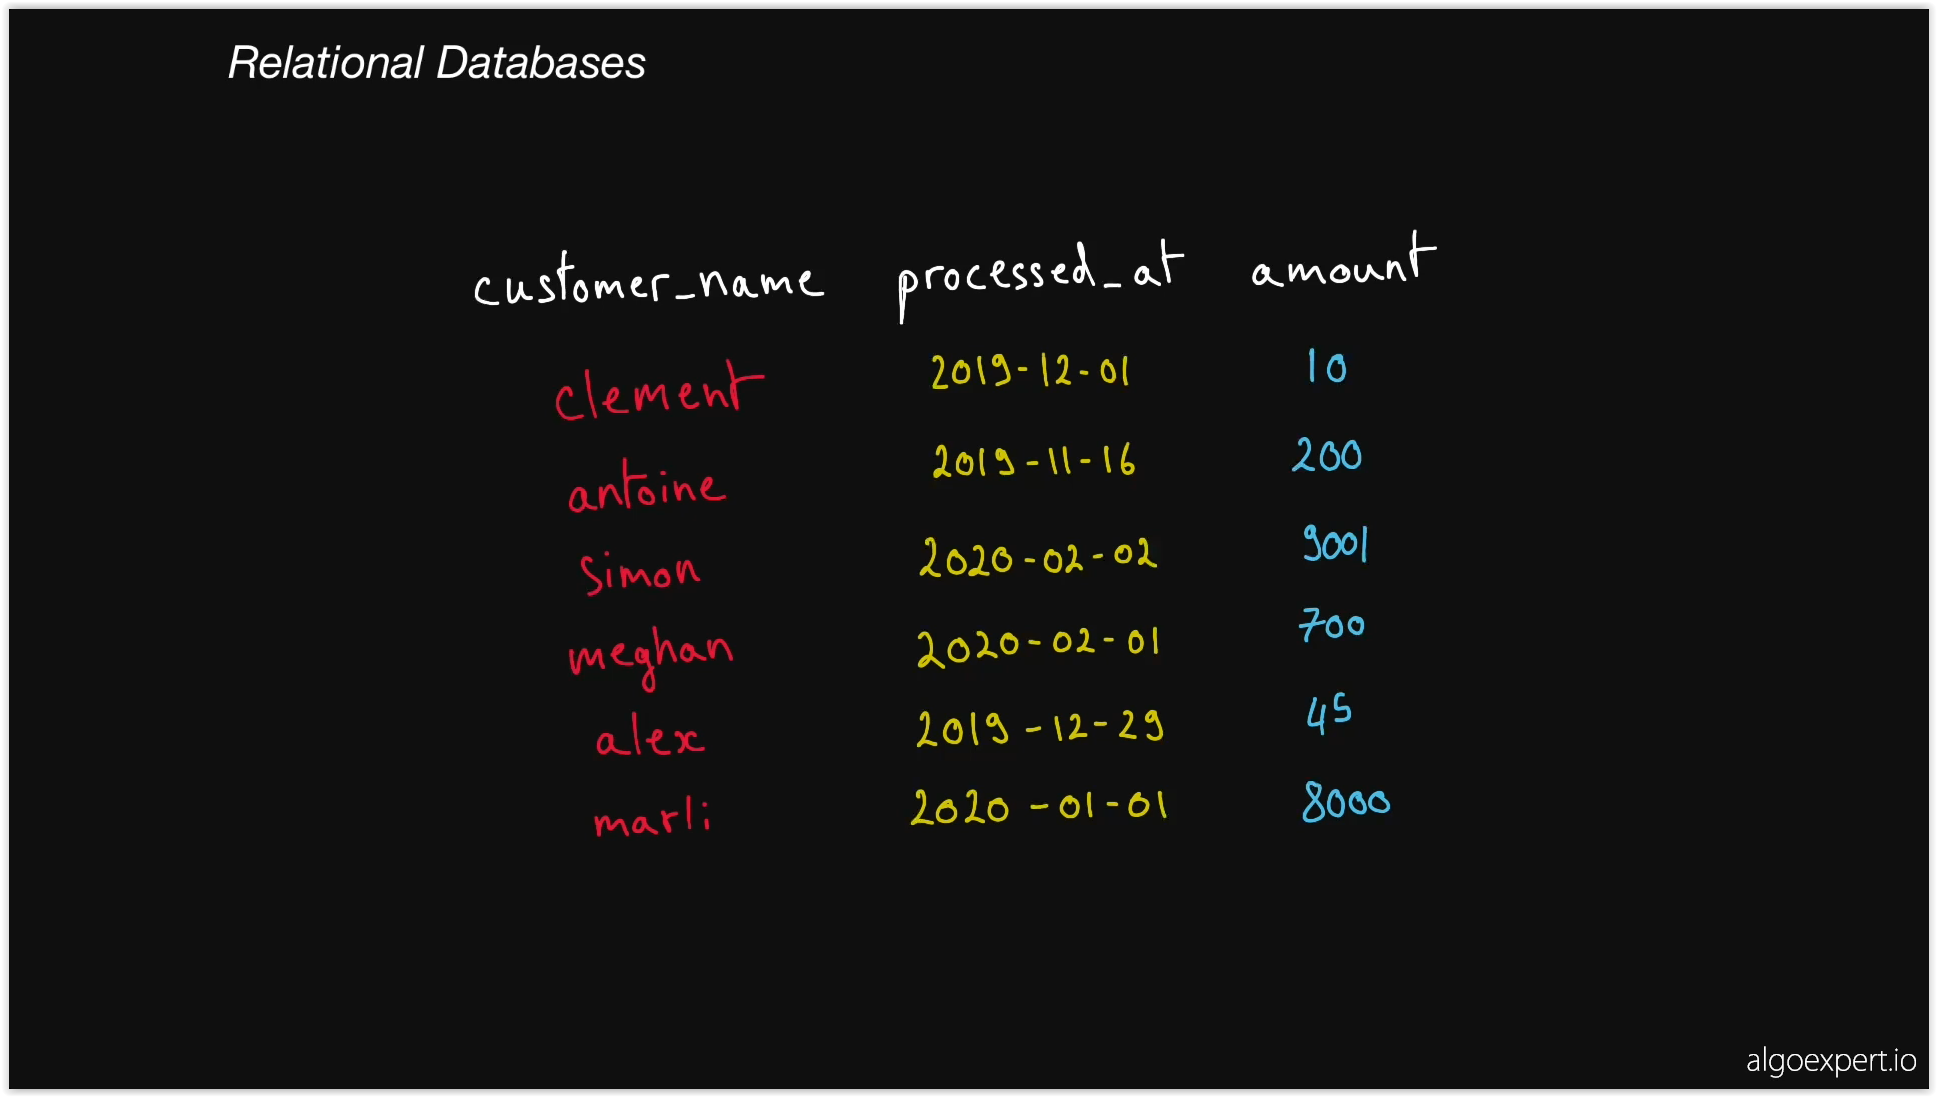 Relational Databases
customer_name processed_at amount
clement 2019-12-01 10
antoine 2019-11-16 200
simon 2020-02-02 9001
meghan 2020-02-01 700
alex 2019-12-29 45
marli 2020-01-01 8000
algoexpert.io